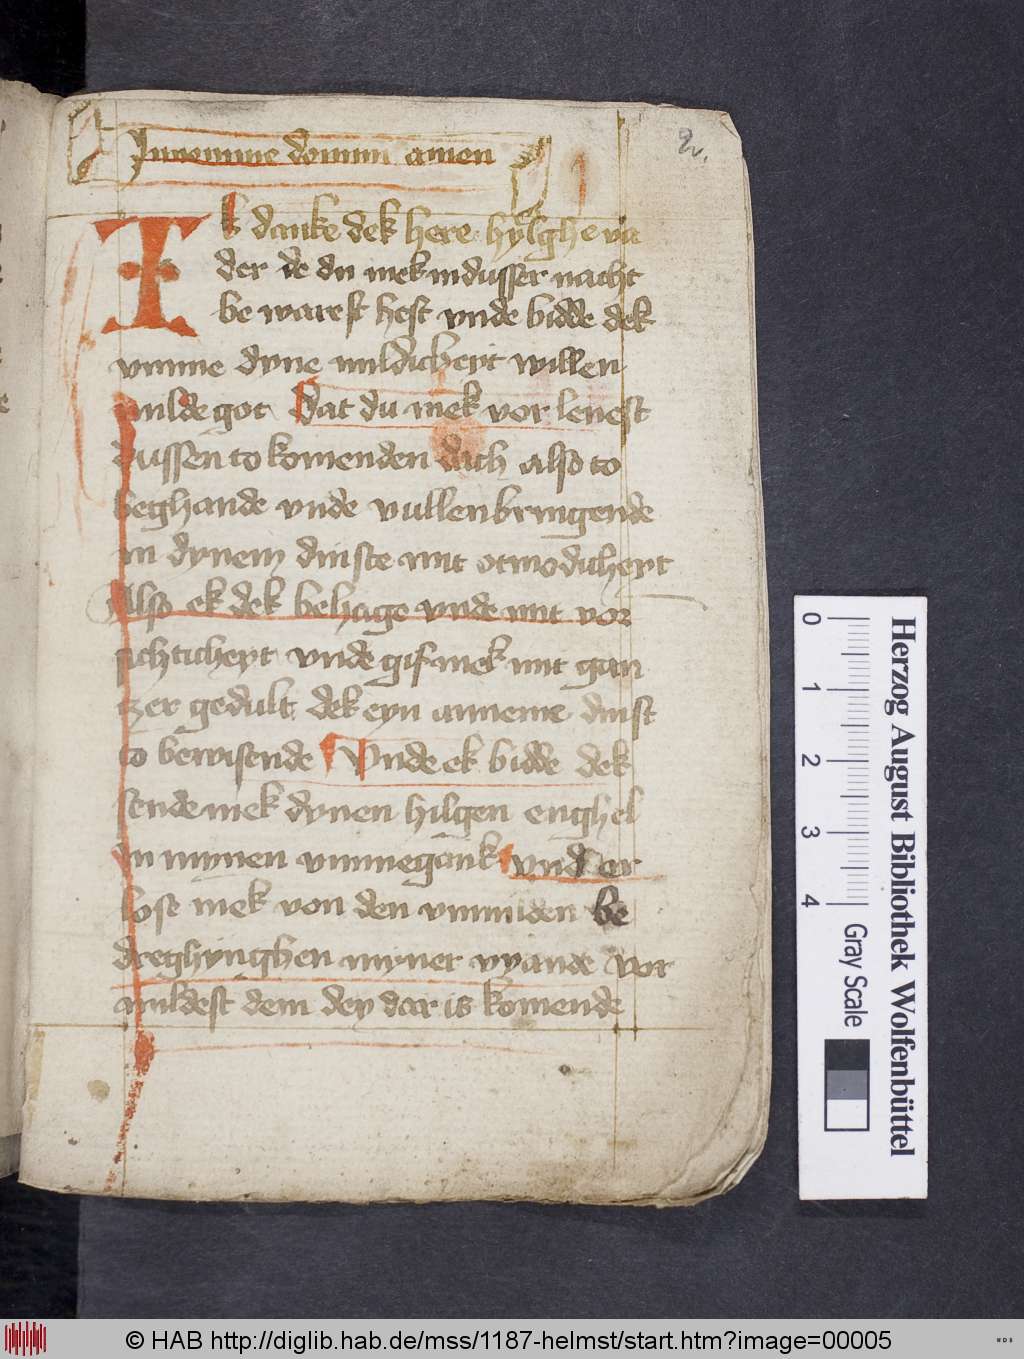 In nomine domini amen
2v.
Ik danke dek here hylghe va
der de du mek in dusser nacht
be warest hest vnde bidde dek
vmme dyne mildicheyt willen
milde got dat du mek vor lenest
dussen to komenden dach also to
beghande vnde vullenbringende
in dynem dinste mit otmodicheyt
Also ek dek behage vnde mit vor
sichticheyt vnde gif mek mit gan
tzer gedult dek eyn anneme dinst
to bewisende Vnde ek bidde dek
sende mek dynen hilgen enghel
in mynen vmmegank vnd er
lose mek von den vnmilden be
dreghinghen myner vyande vor
mildest dem dey dar is komende
0 1 2 3 4
Gray Scale
Herzog August Bibliothek Wolfenbüttel
© HAB http://diglib.hab.de/mss/1187-helmst/start.htm?image=00005
WDB